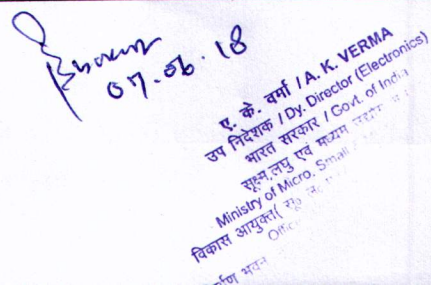 07.06.18
ए. के. वर्मा / A. K. VERMA
उप निदेशक / Dy. Director (Electronics)
भारत सरकार / Govt. of India
सूक्ष्म, लघु एवं मध्यम
Ministry of Micro, Small
विकास आयुक्त(
भवन